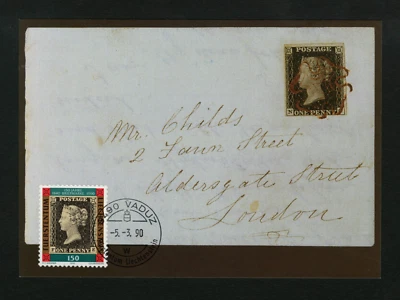 POSTAGE
ONE PENNY
Mr. Childs
2 Fawn Street
Aldersgate Street
London
POSTAGE
ONE PENNY
150
9490 VADUZ
-5.-3.90